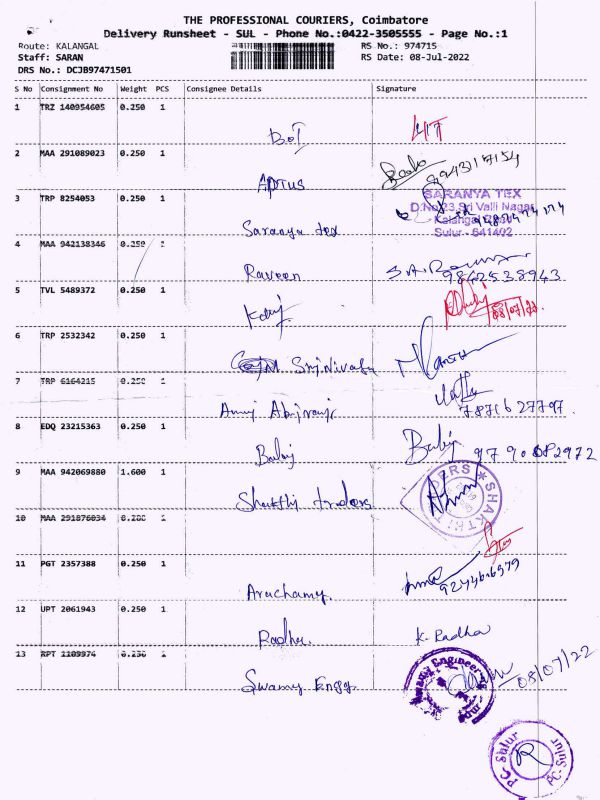 THE PROFESSIONAL COURIERS, Coimbatore
Delivery Runsheet - SUL - Phone No.:0422-3505555 - Page No.:1
Route: KALANGAL RS No.: 974715
Staff: SARAN RS Date: 08-Jul-2022
DRS No.: DCJB97471501
S No Consignment No Weight PCS Consignee Details Signature
1 TRZ 140954605 0.250 1
2 MAA 291089023 0.250 1
APTUS
3 TRP 8254053 0.250 1
SARANYA TEX
D.No.23,Sri Valli Nagar
Kalangal Road
Sulur - 641402
Saranya tex
4 MAA 942138346 0.250 1
Raveen
9842538943
5 TVL 5489372 0.250 1
08/07/22
6 TRP 2532342 0.250 1
Srinivasa
7 TRP 6164215 0.250 1
7871627797
8 EDQ 23215363 0.250 1
Balaj Balaj 9790682972
9 MAA 942069880 1.600 1
Shakthi traders
SHAKTHI
10 MAA 291876034 0.200 1
11 PGT 2357388 0.250 1
Aruchamy
12 UPT 2061943 0.250 1
Radha K. Radha
13 RPT 1109974 0.250 1
Swamy Engg. 08/07/22
Swamy Engineering
PC-Sulur
R
PC-Sulur